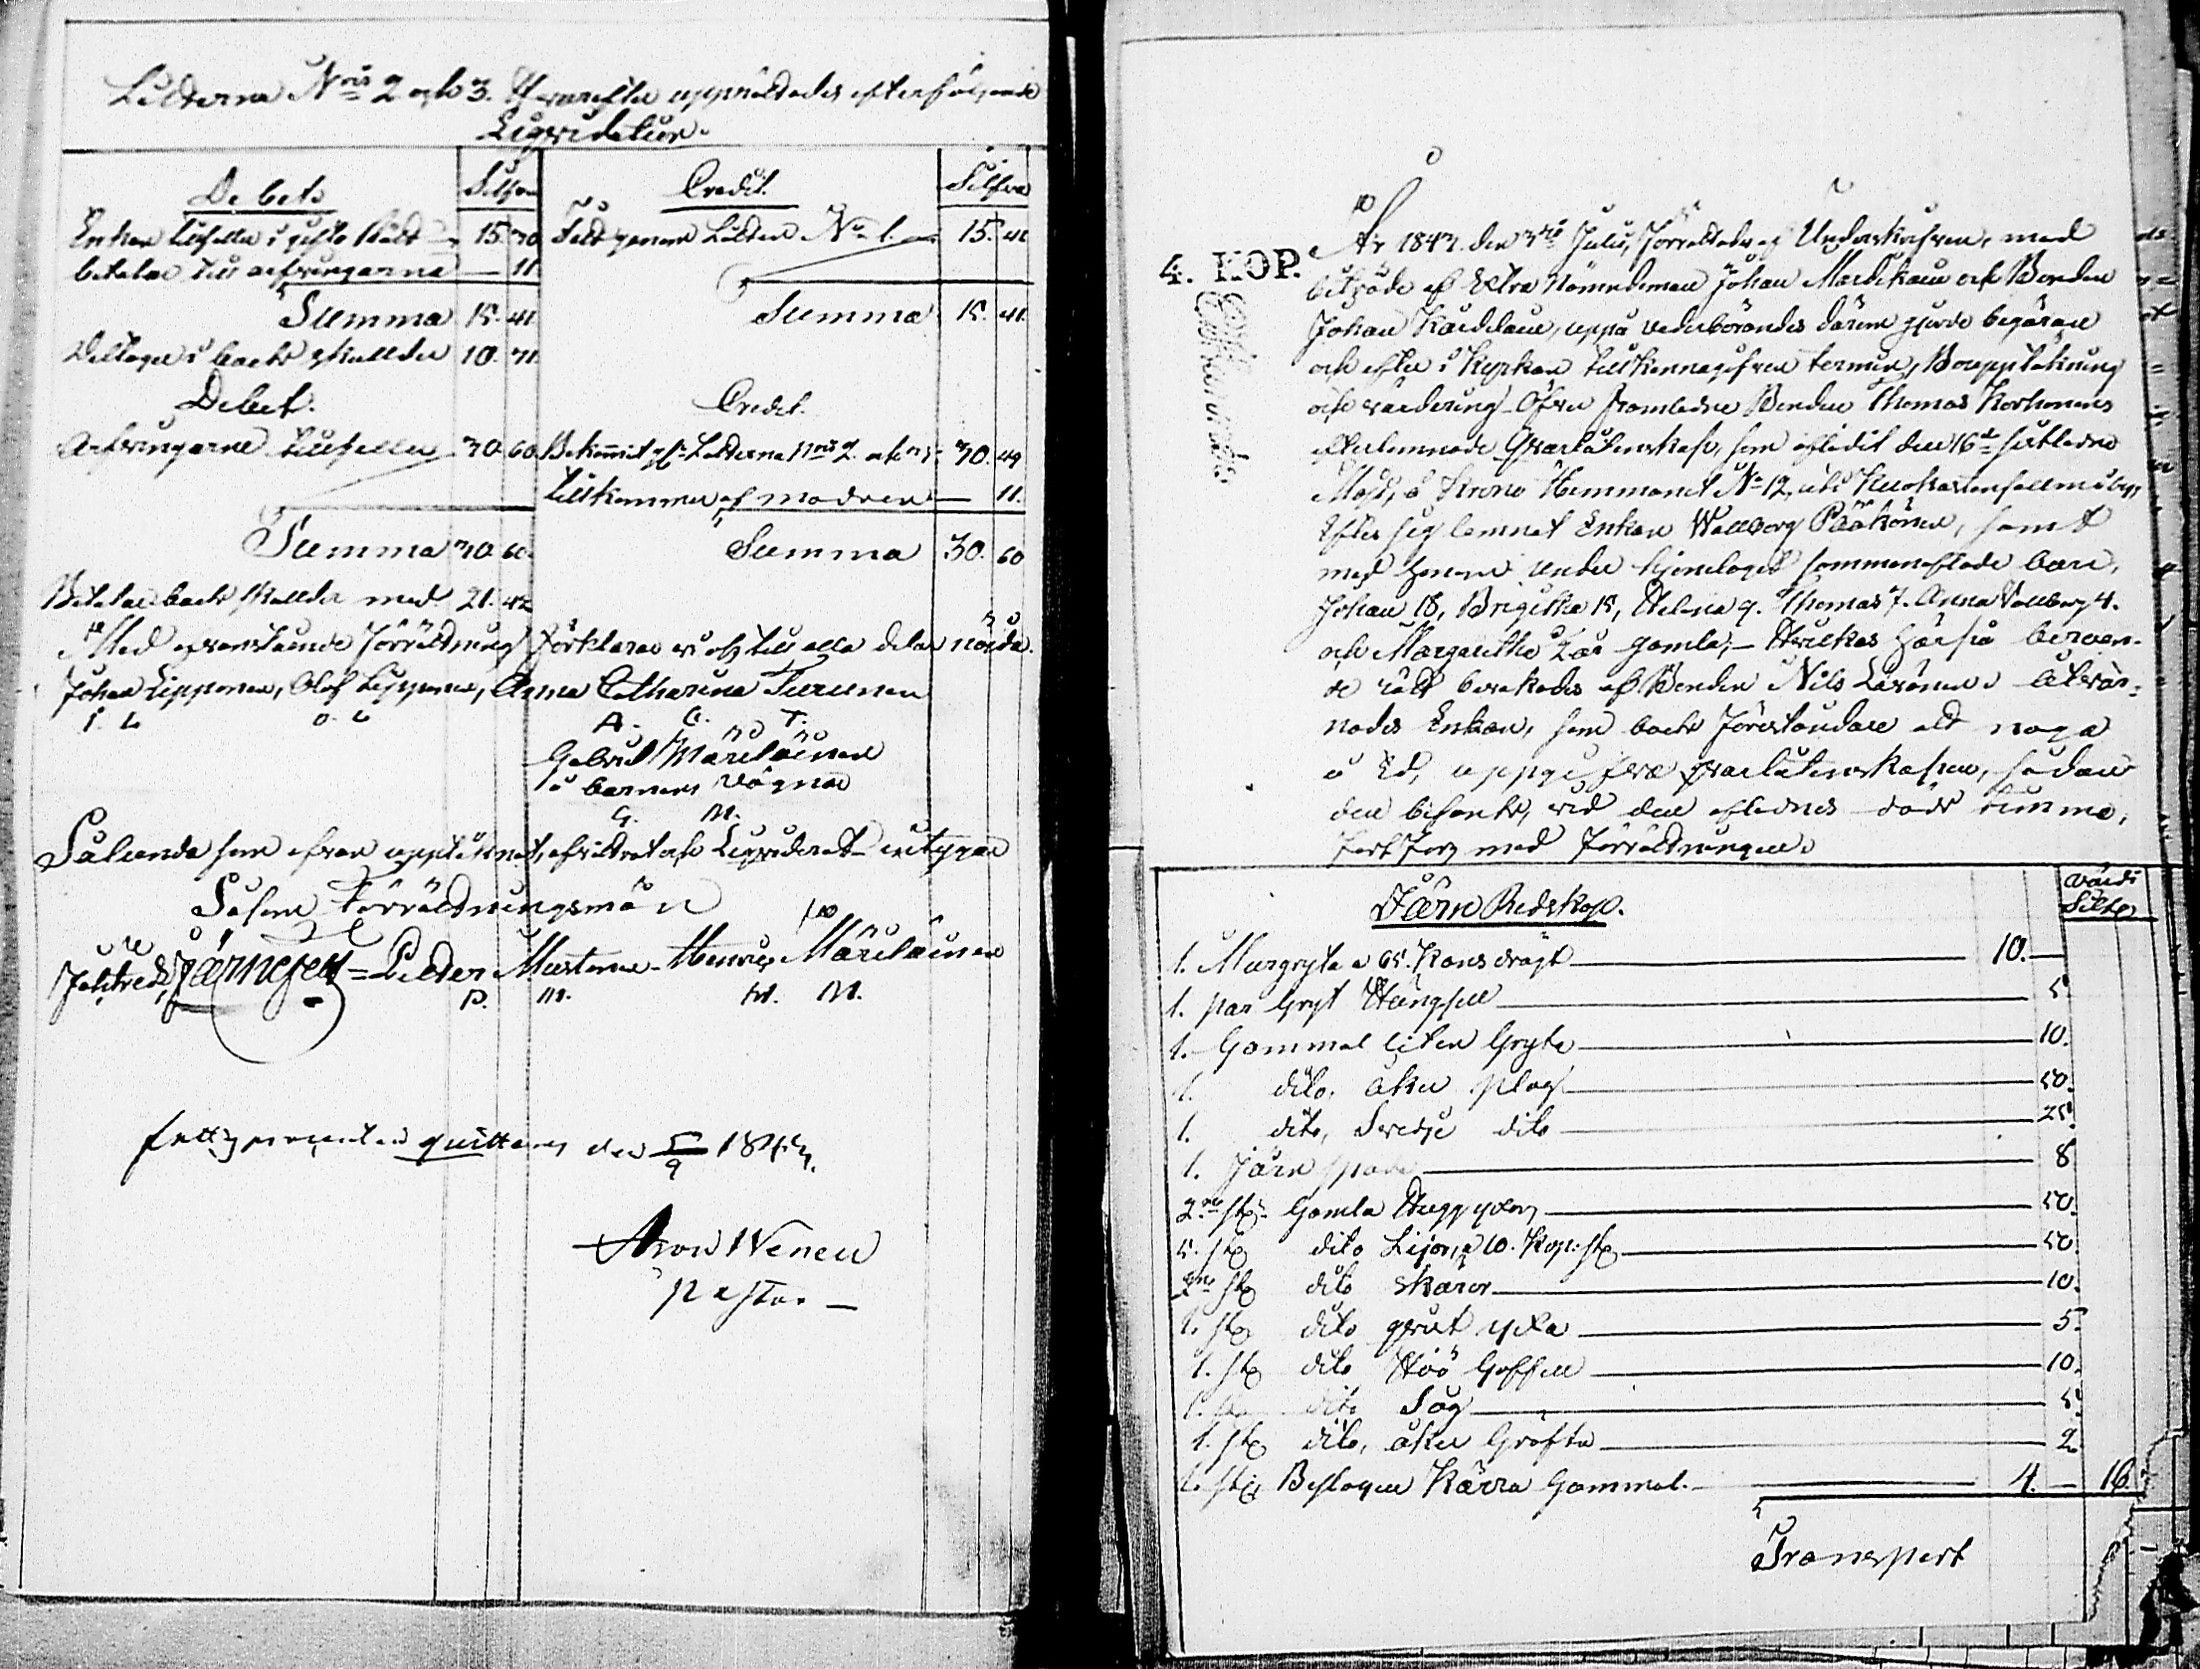 Lotterne N:ris 2 och 3. Hvarefter upprättades efterföljande
Liqvidation.
Debet
Silfver
Credit.
Silfver
Enkan tillfaller i gifto Rätt 15. 30
Fådt genom Lotten N:o 1. 15. 41
betalar till arfvingarne — 11.
Summa 15. 41.
Summa 15. 41.
Deltager i boets skulder 10. 71.
Debet.
Credit.
Arfvingarne tillfaller 30. 60
Bekommit pr Lotterne N:ris 2. och 3. 30. 49
tillkommer af modren — 11.
Summa 30. 60.
Summa 30. 60
Betalar boets skulder med 21. 42
Med ofvanstående förrättning förklarar vi oss till alla delar nöjda.
Johan Lipponen, Olof Lipponen, Anna Catharina Turunen
I. L. O. L. A. C. T.
Gabriel Märiläinen
å barnens vägnar
G. M.
Sålunda hara ofvan upptecknat, afvittrat och Liqviderat intygar
Såsom Förrättningsmän
Järnefelt = Petter Mustonen - Henric Märiläinen
P. M. H. M.
fattigprocenten quitteras den 5/9 1843.
Aron Wenell
Pastor —
4. KOP.
År 1843. den 3die Julii, förrättades af Underskrifven, med
biträde af Extra Nämndeman Johan Mardikain och Bonden
Johan Kardelain, uppå vederbörandes därom gjorde begäran
och efter i Kyrkan tillkännagifven termin, Boupptekning
och värdering Öfver framledne Bonden Thomas Korhonens
efterlemnade Qvarlåtenskap, som aflidit den 16de sistledne
Maji, å Krono Hemmanet N:o 12, uti
Efter sig lemnat Enkan Wallborg Pääkönen, samt
med henne under hjonelaget sammanaflade barn,
Johan 18, Brigitha 15, Helena 9. Thomas 7. Anna Vallborg 4.
och Margaretha 2 år gamla; — Hvilkas härfrå beroen-
de rätt bevakades af Bonden Nils Lesönen. Åtvar-
nades Enkan, som boets föreståndare att noga
å Ed, uppgifva qvarlåtenskapen, sådan
den befants, vid den aflednes död timma,
fortfor med förrättningen.
Järn Redskap.
värde
Silfver
1. Murgryta a 65. Kans drägt — 10. —
1. par Gryt Hängsell — 5
1. Gammal liten Gryta — 10.
1. dito, åker plog — 50.
1. dito, Svedje dito — 25
1. Järn spade — 8
2ne st. Gamla Huggyxor — 50.
5. st. dito Lijor, a 10. Kop: st. — 50.
2ne st. dito skäror — 10.
1. st. dito qvist yxa — 5.
1. st. dito Höö Gaffell — 10.
1. st. dito Såg — 5
1. st. dito, åker Gräfta — 2
1. st. Beslagen Kärra Gammal. — 4. — 16.
Transport